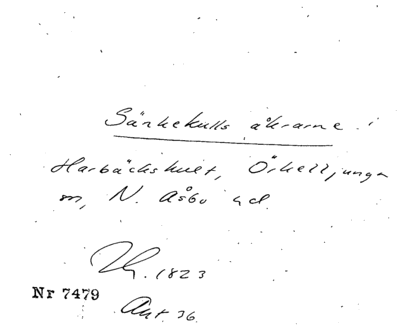 Särkekulls åkrarne i
Harbäckshult, Örkelljunga
sn, N. Åsbo hd.
Th. 1823
Nr 7479
Ant. 36.